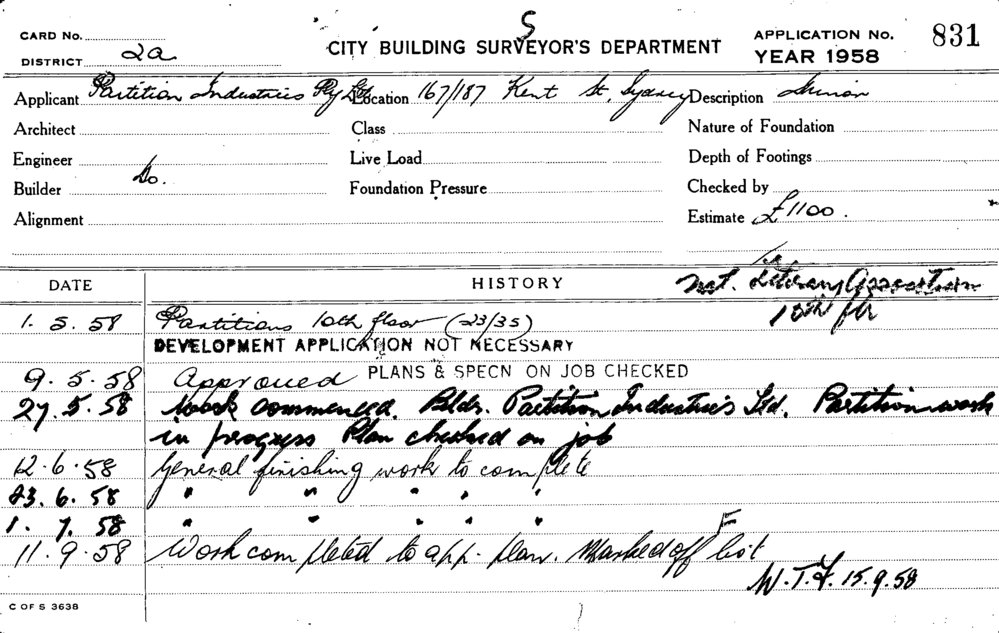 S
CARD No. CITY BUILDING SURVEYOR'S DEPARTMENT APPLICATION No. 831
DISTRICT 2a YEAR 1958
Applicant Partition Industries Pty Ltd. Location 167/187 Kent St, Sydney Description Minor
Architect Class Nature of Foundation
Engineer Live Load Depth of Footings
Builder Do. Foundation Pressure Checked by
Alignment Estimate £1100.
DATE HISTORY Nat. Literary Association
10th flr
1. 5. 58 Partitions 10th floor (23/35)
DEVELOPMENT APPLICATION NOT NECESSARY
9. 5. 58 Approved PLANS & SPECN ON JOB CHECKED
27. 5. 58 Work commenced. Bldr. Partition Industries Ltd. Partition work
in progress Plan checked on job
12. 6. 58 General finishing work to complete
23. 6. 58 " " " " "
1. 7. 58 " " " " "
11. 9. 58 Work completed to app. plan. Marked off F list
W.T.F. 15.9.58
C OF S 3638